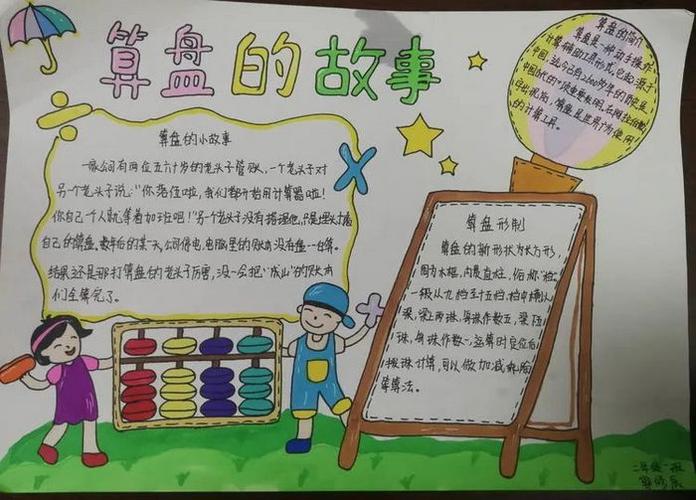 算盘的故事
算盘的小故事
一家公司有两位五六十岁的老头子管账,一个老头子对
另一个老头子说:“你落伍啦,我们都开始用计算器啦!
你自己个人就等着加班吧!”另一个老头子没有搭理他,只是埋头打着
自己的算盘。数年后的某一天,公司停电,电脑里的账本没有盘一台算。
结果还是那打算盘的老头子厉害,没一会把“成山”的账本
们全算完了。
算盘的简介
算盘是一种手动操作
计算辅助工具形式。它起源于
中国,迄今已有2600多年的历史,是
中国古代的
阿拉伯数
字出现前,算盘是世界广为使用
的计算工具。
算盘形制
算盘的新形状为长方形,
周为木框,内贯直柱,俗称“档”。
一般从九档至十五档,档中横以
梁,梁上两珠,每珠作数五,梁下五
珠,每珠作数一,运算时定位后
拨珠计算,可以做加减乘除
等算法。
二年级一班